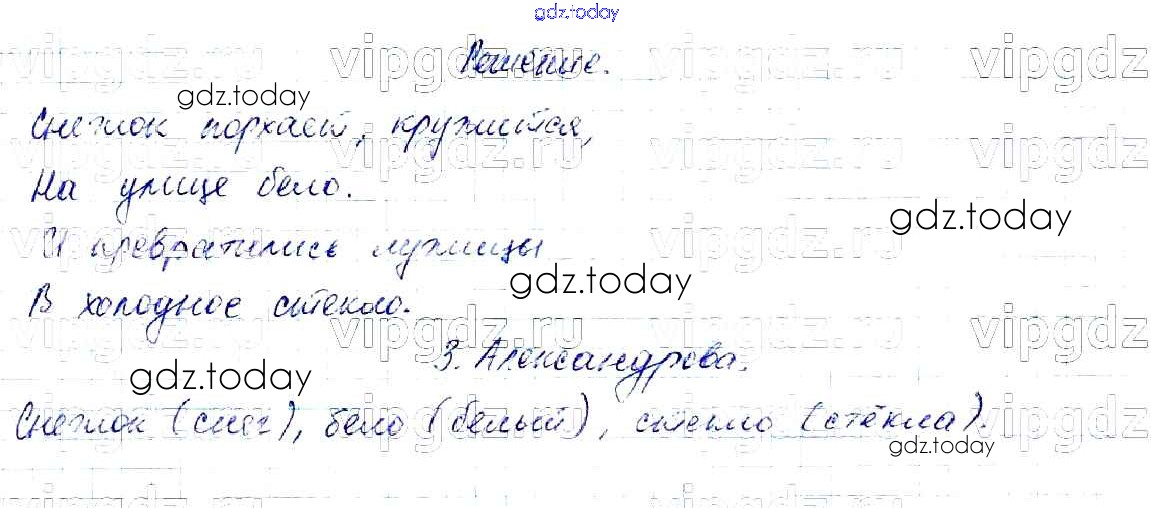 gdz.today
vipgdz vipgdz.ru vipgdz
Решение.
gdz.today
Снежок порхает, кружится,
vipgdz vipgdz.ru vipgdz
На улице бело.
gdz.today
И превратились лужицы
gdz.today
В холодное стекло.
vipgdz vipgdz.ru vipgdz
З. Александрова.
gdz.today
Снежок (снег), бело (белый), стекло (стёкла).
gdz.today